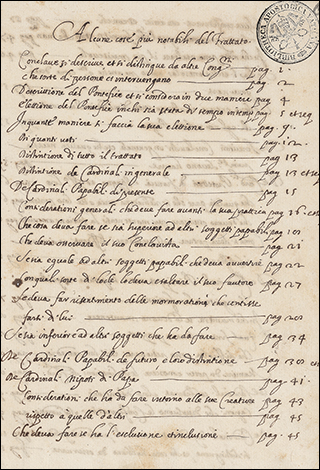 Alcune cose più notabili del Trattato.
Conclave si descrive et si distingue da altre Cong.ni pag. 1.
che sorte di persone vi intervengono pag. 2
Descrizione del Pontefice et si considera in due maniere pag 4
Elettione del Pontefice in chi sia stata di tempo in temp pag 5 et seq
In quante maniere si faccia la sua elettione pag. 9.
Di quanti voti pag. 12.
Distintione di tutto il trattato pag 13
Distintione de Cardinali in generale pag 13 et seq
De Cardinali Papabili di presente pag. 15
Considerationi generali che deva fare avanti la sua prattica pag 16. et
Che cosa deva fare se sia superiore ad altri soggetti papabili pag
Che deva osservare il suo Conclavista pag 21
Se sia equale ad altri soggetti papabili che deva avvertire pag 22
Con qual sorte di lode lo deva esaltare il suo fautore pag 27
Se deva far risentimento delle mormorationi che sentisse
farsi di lui pag 28
Se sia inferiore ad altri soggetti che ha da fare pag 34
De Cardinali Papabili de futuro e loro distintione pag 38 et
De Cardinali Nipoti di Papa pag. 41.
Considerationi che ha da fare intorno alle sue Creature pag 43
rispetto a quelle d'altri pag. 45
Che deva fare se ha l'esclusione et inclusione pag. 45